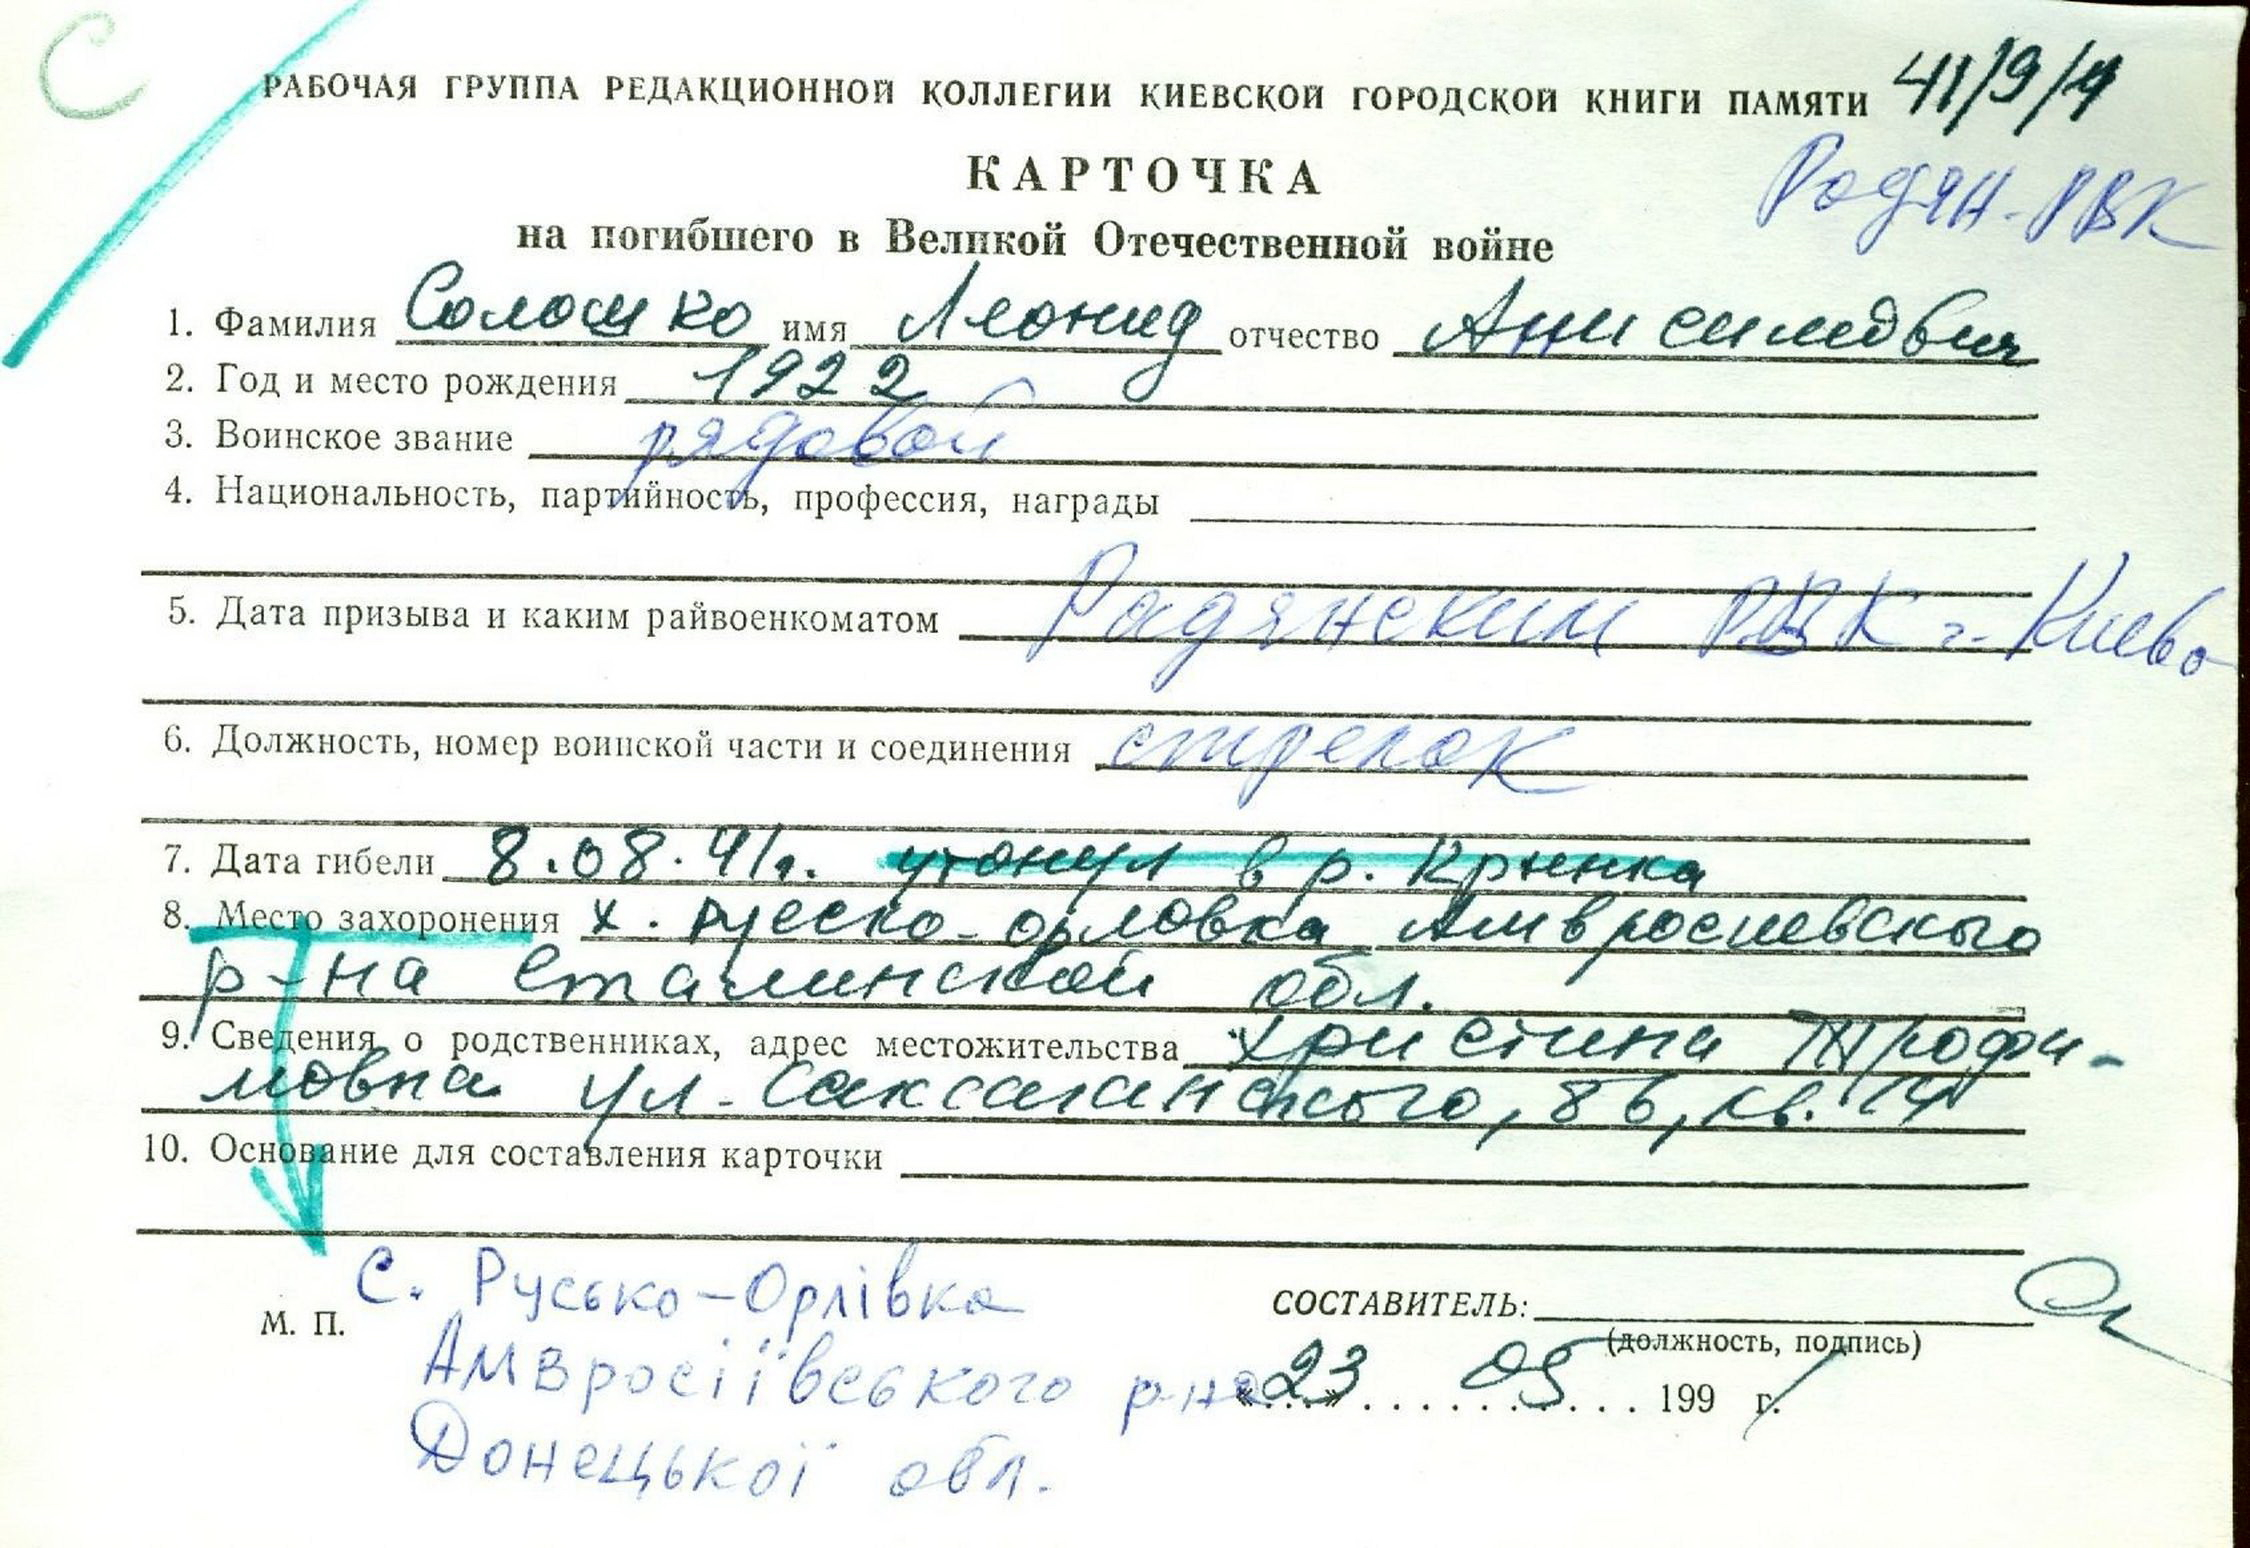 С
РАБОЧАЯ ГРУППА РЕДАКЦИОННОЙ КОЛЛЕГИИ КИЕВСКОЙ ГОРОДСКОЙ КНИГИ ПАМЯТИ 41/9/4
КАРТОЧКА Радян. РВК
на погибшего в Великой Отечественной войне
1. Фамилия Солошко имя Леонид отчество Анисимович
2. Год и место рождения 1922
3. Воинское звание рядовой
4. Национальность, партийность, профессия, награды
5. Дата призыва и каким райвоенкоматом Радянским РВК г. Киева
6. Должность, номер воинской части и соединения стрелок
7. Дата гибели 8.08.41г. утонул в р. Крынка
8. Место захоронения х. Русско-Орловка Амвросиевского
р-на Сталинской обл.
9. Сведения о родственниках, адрес местожительства Христина Трофи-
мовна ул. Саксаганского, 86, кв. 14
10. Основание для составления карточки
М. П. С. Русько-Орлівка
Амвросіївського р-на
Донецької обл.
СОСТАВИТЕЛЬ:
(должность, подпись)
«23» 05 199 г.